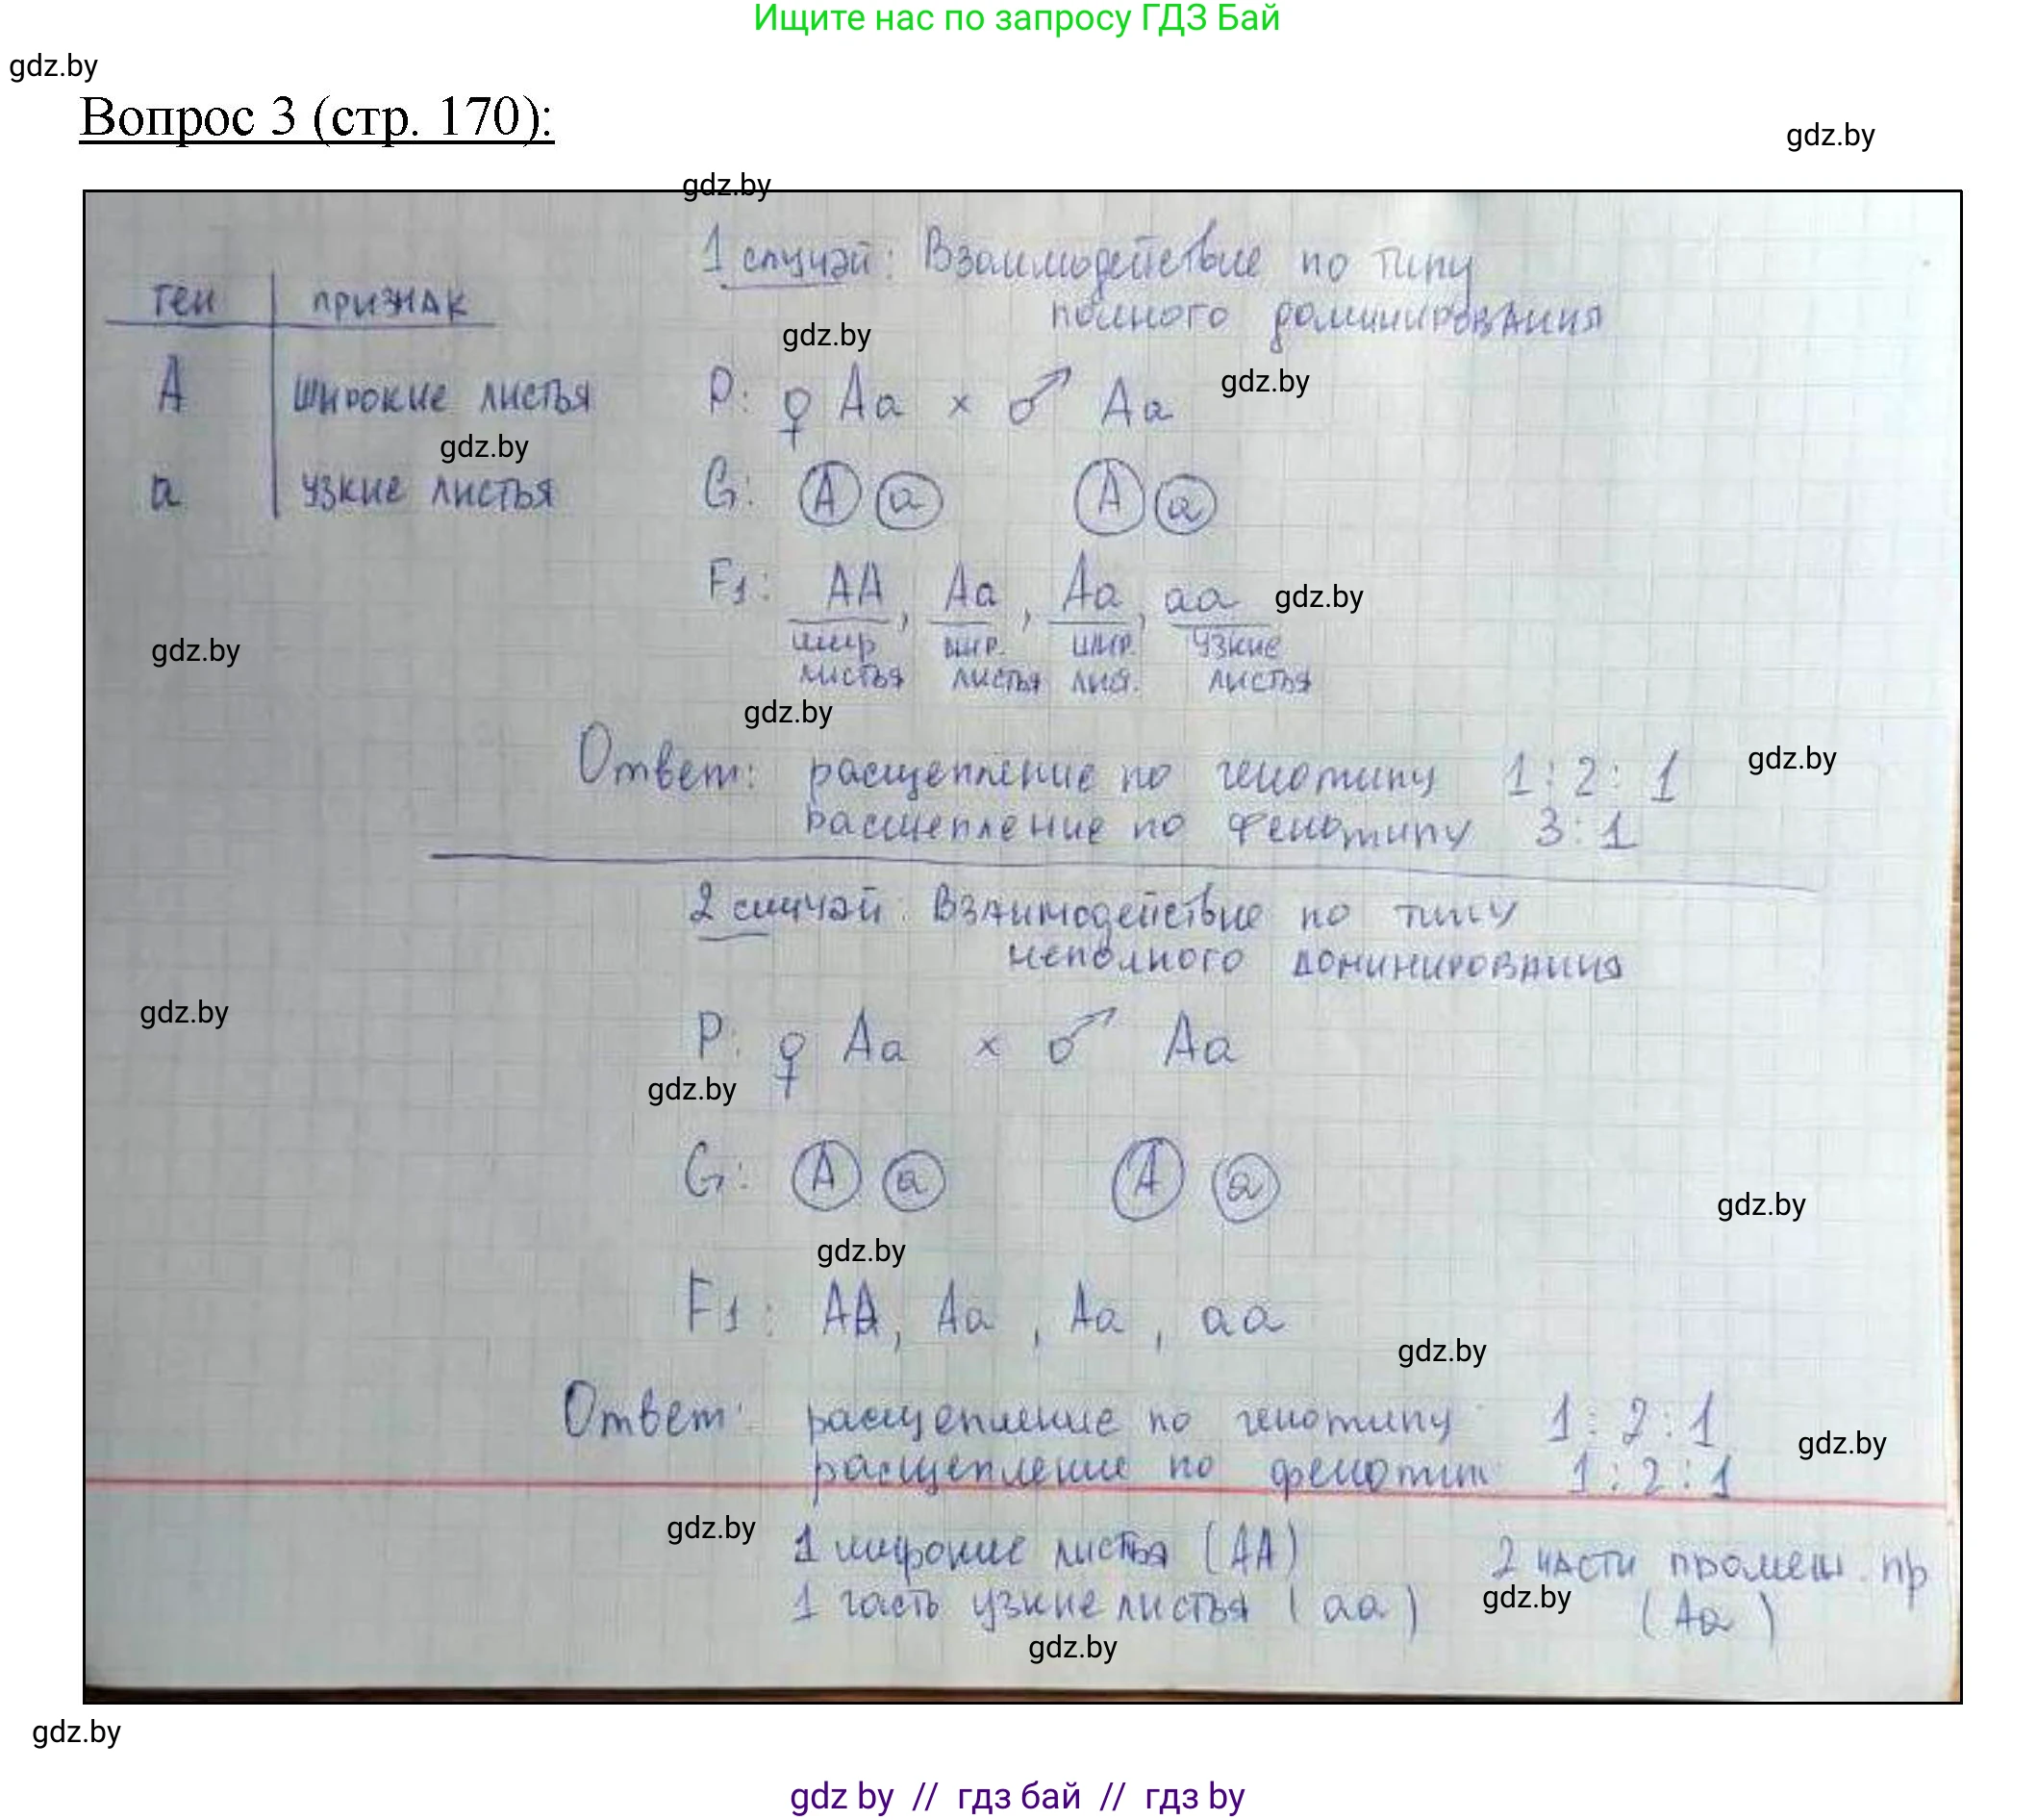 Ищите нас по запросу ГДЗ Бай
gdz.by
Вопрос 3 (стр. 170):
gdz.by
gdz.by
1 случай: Взаимодействие по типу
полного доминирования
ген признак
gdz.by
А широкие листья
Р: ♀ Аа × ♂ Аа
gdz.by
gdz.by
а узкие листья
G: А а А а
F1: АА, Аа, Аа, аа
gdz.by
шир шир. шир. узкие
листья листья лис. листья
gdz.by
gdz.by
Ответ: расщепление по генотипу 1:2:1
gdz.by
расщепление по фенотипу 3:1
2 случай: Взаимодействие по типу
неполного доминирования
gdz.by
Р: ♀ Аа × ♂ Аа
gdz.by
G: А а А а
gdz.by
gdz.by
F1: АА, Аа, Аа, аа
gdz.by
Ответ: расщепление по генотипу 1:2:1
gdz.by
расщепление по фенотип 1:2:1
gdz.by
1 широкие листья (АА) 2 части промеж. пр
1 часть узкие листья (аа) (Аа)
gdz.by
gdz.by
gdz.by
gdz by // гдз бай // гдз by